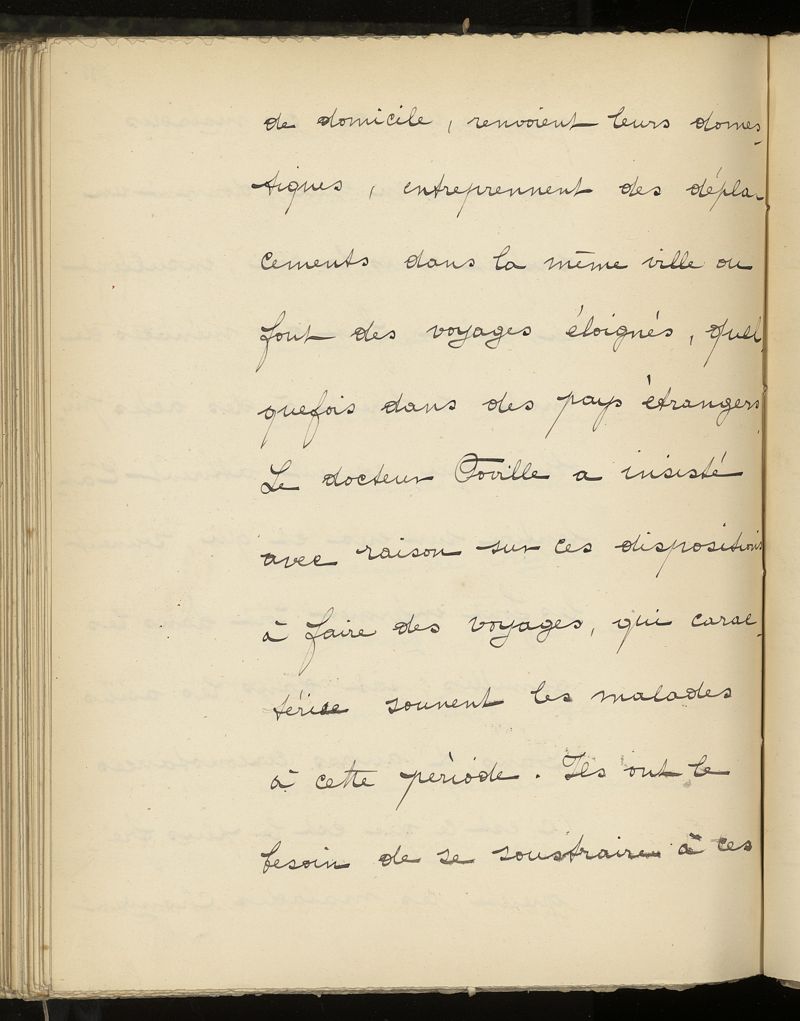 de domicile, renvoient leurs domes-
tiques, entreprennent des dépla-
cements dans la même ville ou
font des voyages éloignés, quel-
quefois dans des pays étrangers.
Le docteur Foville a insisté
avec raison sur ces dispositions
à faire des voyages, qui carac-
térise souvent les malades
à cette période. Ils ont le
besoin de se soustraire à ces